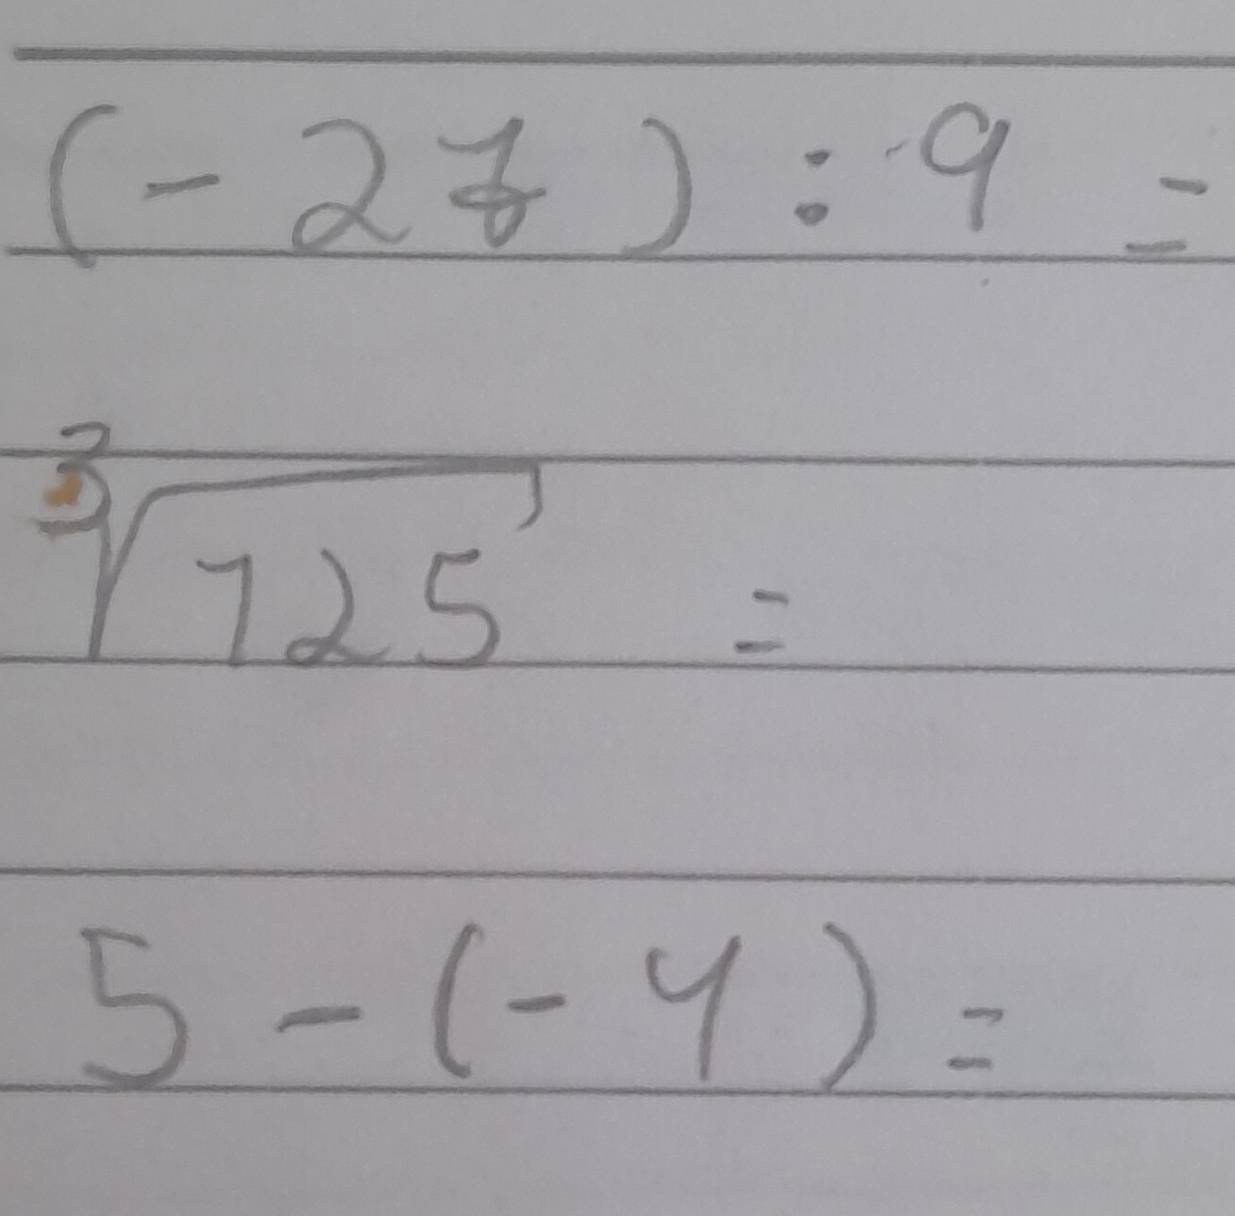 (-27) : 9 =
∛125 =
5 - (-4) =